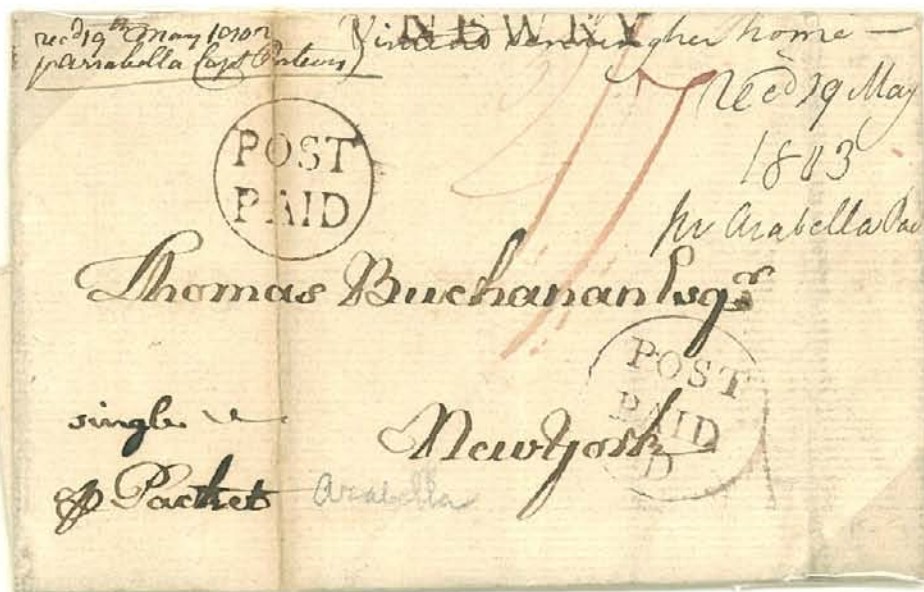 NEWRY
recd 19th May
p Arrabella Capt
her home —
Recd 19 May
1803
pr Arabella Pac
POST
PAID
Thomas Buchanan Esqr
POST
PAID
D
single
New York
p Packet
Arabella